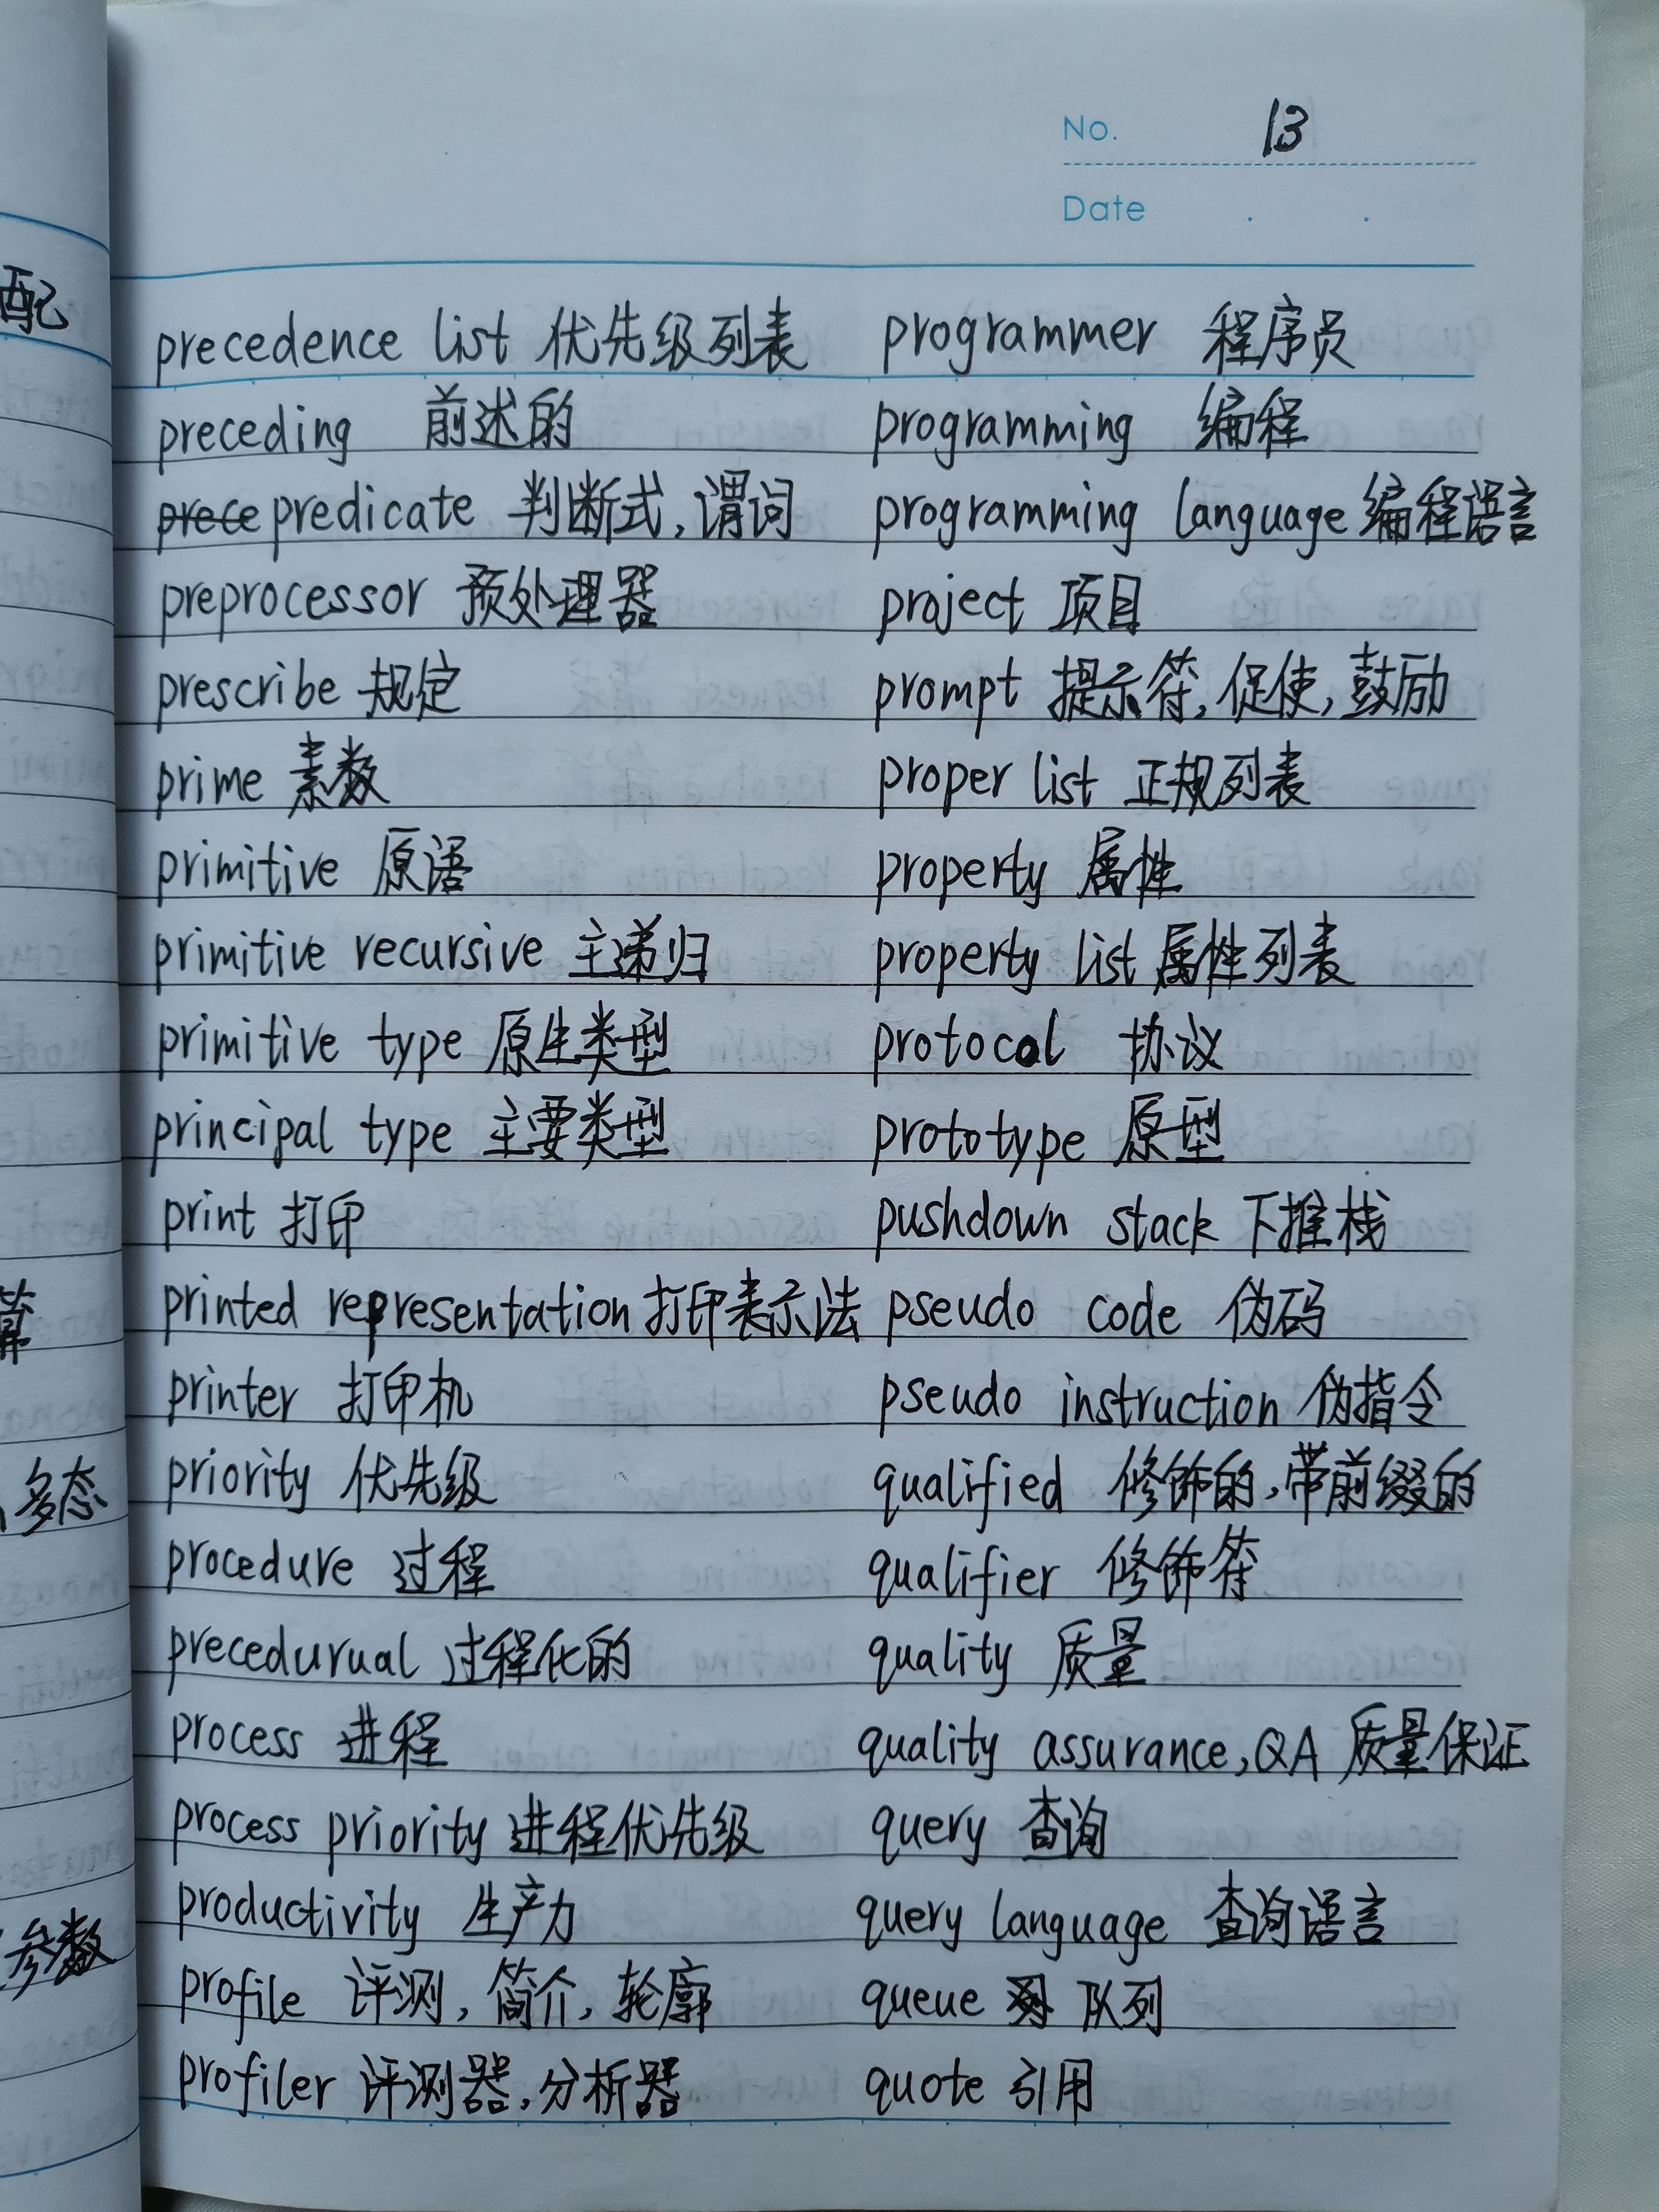 No. 13
Date . .
precedence list 优先级列表
preceding 前述的
prece predicate 判断式,谓词
preprocessor 预处理器
prescribe 规定
prime 素数
primitive 原语
primitive recursive 主递归
primitive type 原生类型
principal type 主要类型
print 打印
printed representation 打印表示法
printer 打印机
priority 优先级
procedure 过程
precedurual 过程化的
process 进程
process priority 进程优先级
productivity 生产力
profile 评测,简介,轮廓
profiler 评测器,分析器
programmer 程序员
programming 编程
programming language 编程语言
project 项目
prompt 提示符,促使,鼓励
proper list 正规列表
property 属性
property list 属性列表
protocol 协议
prototype 原型
pushdown stack 下推栈
pseudo code 伪码
pseudo instruction 伪指令
qualified 修饰的,带前缀的
qualifier 修饰符
quality 质量
quality assurance,QA 质量保证
query 查询
query language 查询语言
queue 队列
quote 引用
配
算
多态
参数